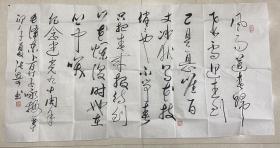 风雨送春归
飞雪迎春到
已是悬崖百
丈冰犹有花枝
俏也不争春
只把春来报待到
山花烂漫时她在
丛中笑
纪念建党九十周年
毛泽东卜算子咏梅